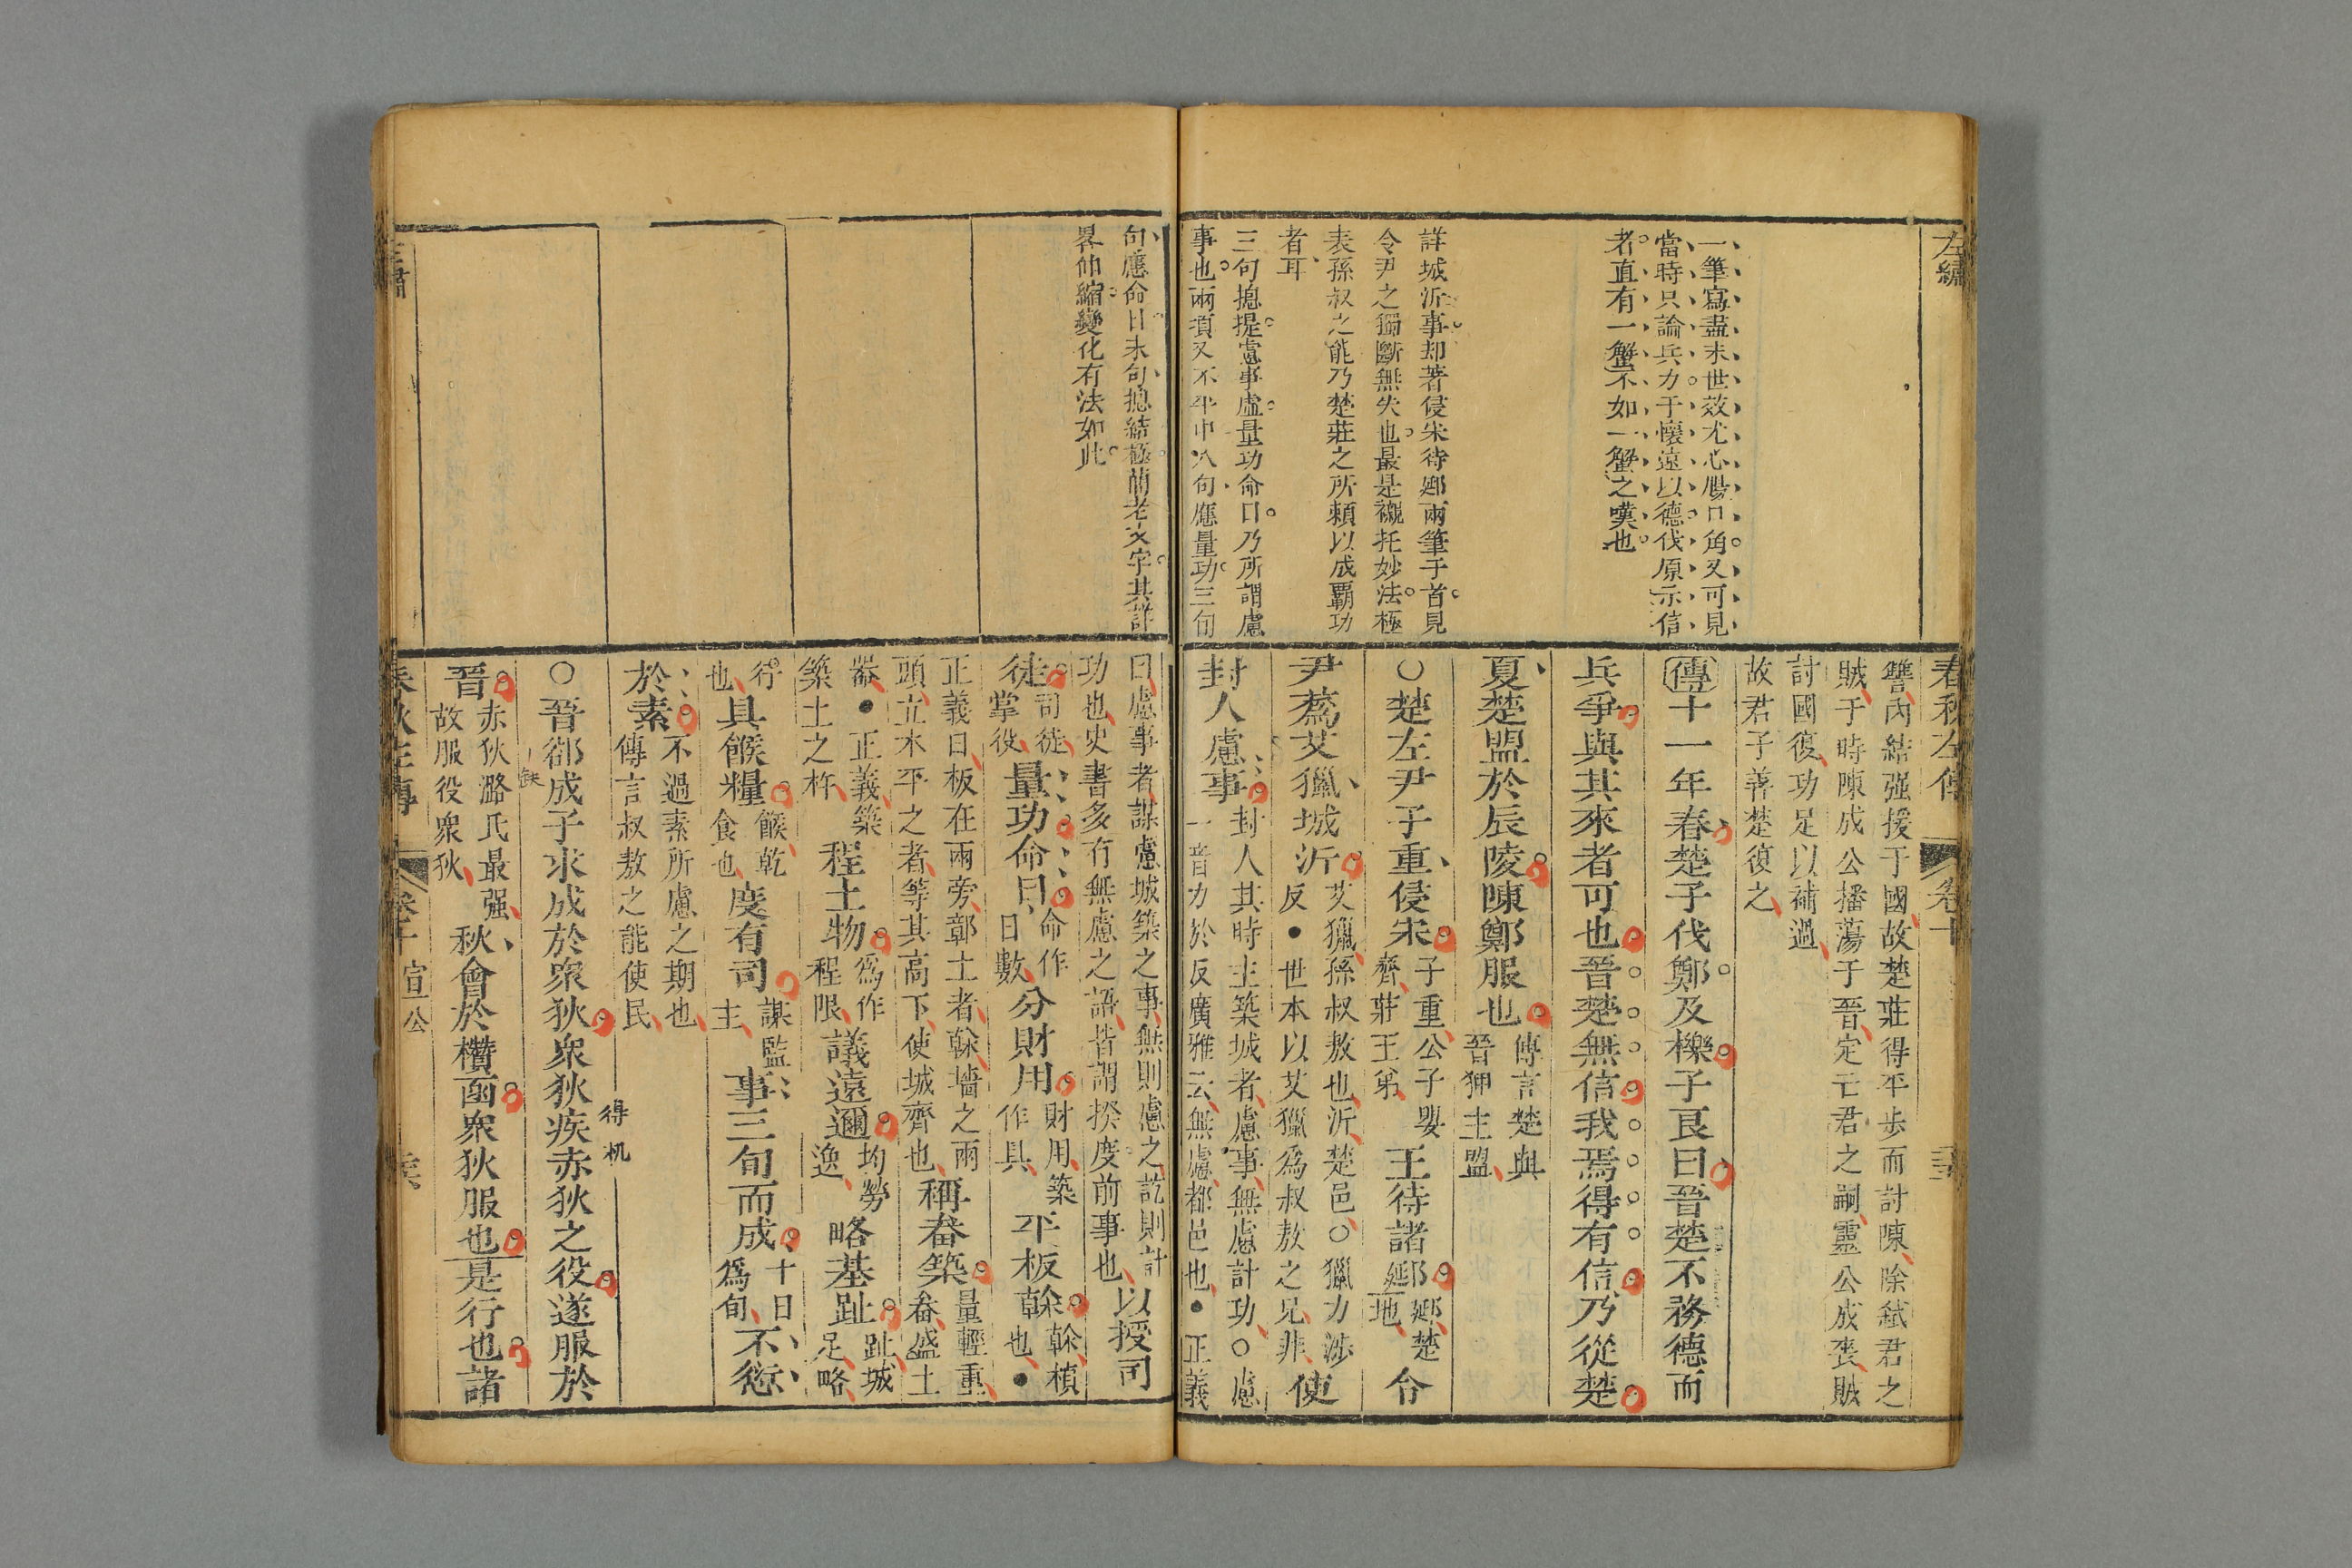 左繡
一筆寫盡末世效尤心腸口角又可見
當時只論兵力于懷遠以德伐原示信
者直有一蟹不如一蟹之嘆也
詳城沂事却著侵宋待郔兩筆于首見
令尹之獨斷無失也最是襯托妙法極
表孫叔之能乃楚莊之所賴以成覇功
者耳
三句摠提慮事虛量功命日乃所謂慮
事也兩項又不平中八句應量功三旬
春秋左傳 卷十
讐內結强援于國故楚莊得平步而討陳除弑君之
賊于時陳成公播蕩于晉定亡君之嗣靈公成喪賊
討國復功足以補過
故君子善楚復之
傳十一年春楚子伐鄭及櫟子良曰晉楚不務德而
兵爭與其來者可也晉楚無信我焉得有信乃從楚
夏楚盟於辰陵陳鄭服也傳言楚與晉狎主盟
○楚左尹子重侵宋子重公子嬰齊莊王弟王待諸郔郔楚地令
尹蒍艾獵城沂艾獵孫叔敖也沂楚邑○獵力涉反●世本以艾獵為叔敖之兄非使
封人慮事封人其時主築城者慮事無慮計功○慮一音力於反廣雅云無慮都邑也●正義
句應命日末句摠結極簡老文字其詳
畧伸縮變化有法如此
曰慮事者謀慮城築之事無則慮之訖則計
功也史書多有無慮之語皆謂揆度前事也以授司
徒司徒掌役量功命日命作日數分財用財用築作具平板榦榦楨也●
正義曰板在兩旁鄣土者榦墻之兩
頭立木平之者等其高下使城齊也稱畚築量輕重畚盛土
器●正義築
築土之杵程土物為作程限議遠邇均勞逸略基趾趾城足略
行也具餱糧餱乾食也度有司謀監主事三旬而成十日為旬不愆
於素不過素所慮之期也傳言叔敖之能使民
得 机
○晉郤成子求成於衆狄衆狄疾赤狄之役遂服於
晉赤狄潞氏最强故服役衆狄秋會於欑函衆狄服也是行也諸
左繡
春秋左傳 卷十 宣公